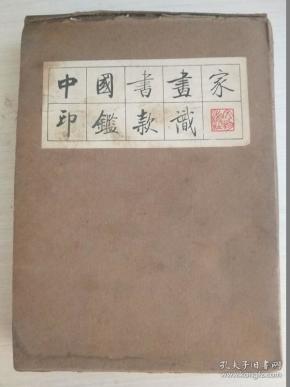 中國書畫家
印鑑款識
孔夫子旧书网